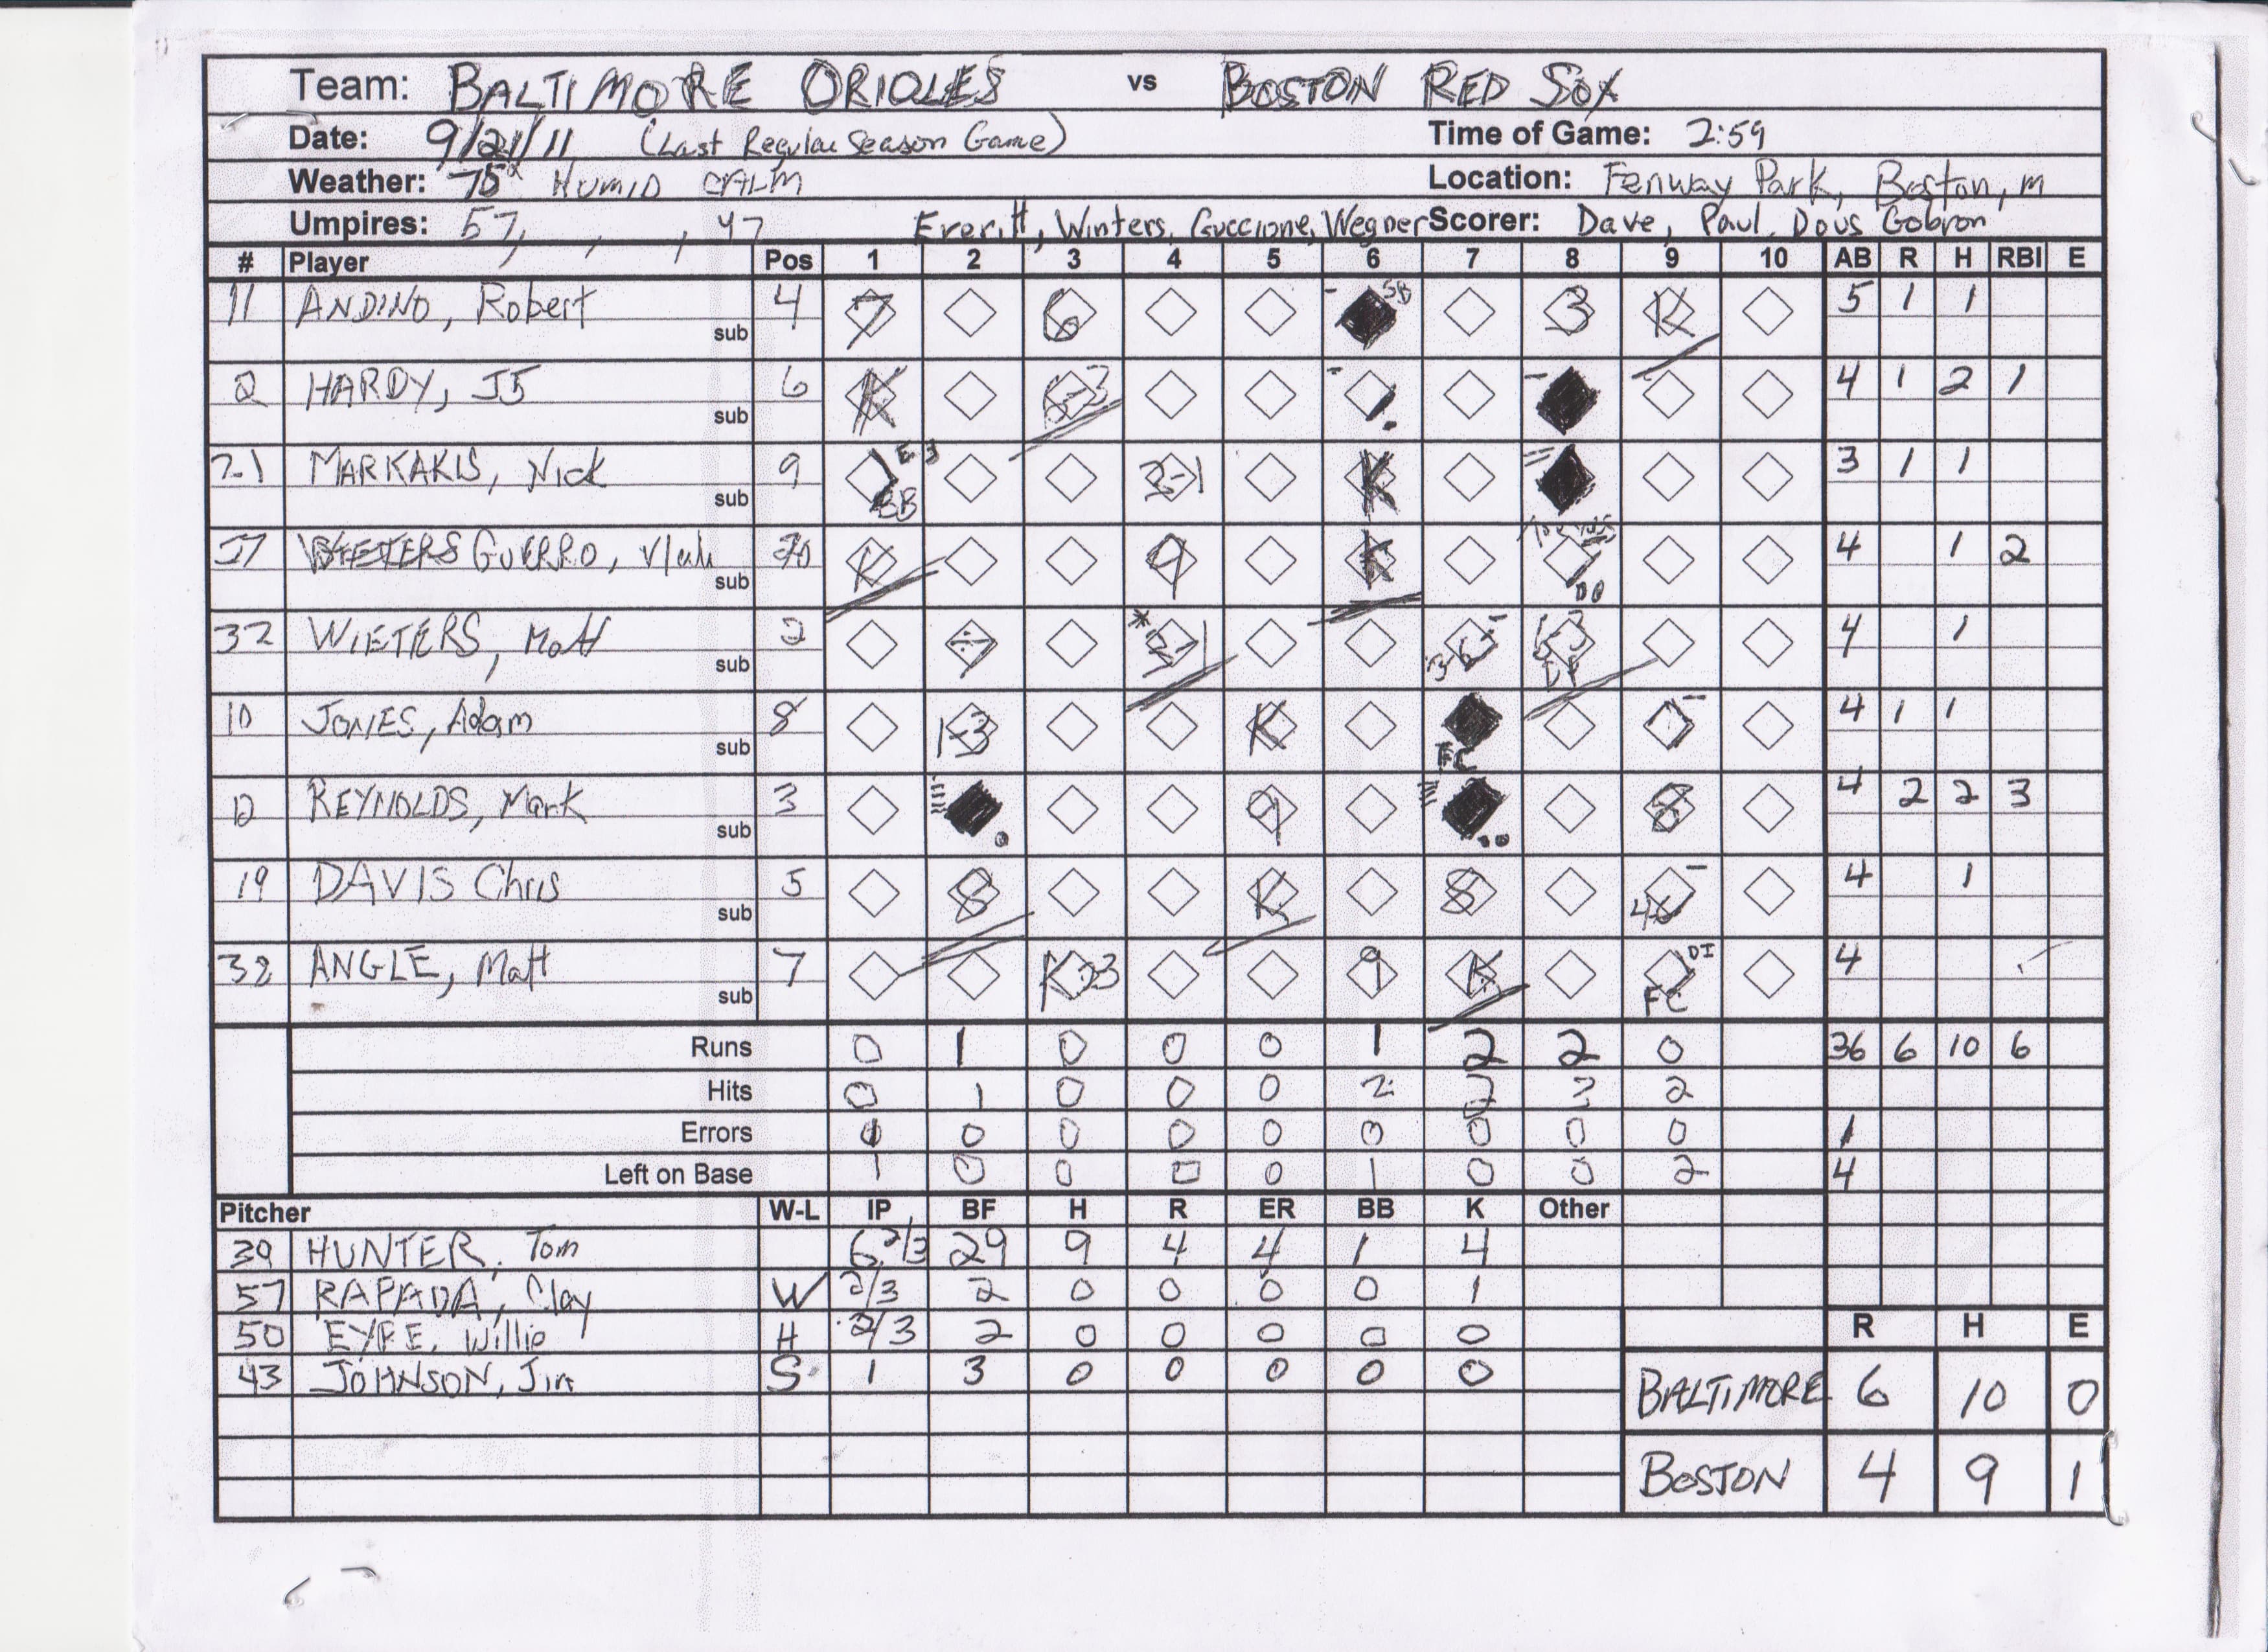 Team: BALTIMORE ORIOLES vs BOSTON RED SOX
Date: 9/21/11 (Last Regular Season Game) Time of Game: 2:59
Weather: 75° HUMID CALM Location: Fenway Park, Boston, M
Umpires: 57, , , 47 Everitt, Winters, Guccione, Wegner Scorer: Dave, Paul, Doug Gobron
# Player Pos 1 2 3 4 5 6 7 8 9 10 AB R H RBI E
11 ANDINO, Robert 4 7 6 SB 3 K 5 1 1
sub
2 HARDY, JJ 6 K 6-3 4 1 2 1
sub
21 MARKAKIS, Nick 9 E-3 BB 3-1 K 3 1 1
sub
27 GUERRO, Vlad K 9 K 4 1 2
sub
32 WIETERS, Matt 2 7 3-1 3-6 6-3 DP 4 1
sub
10 JONES, Adam 8 1-3 K FC 4 1 1
sub
12 REYNOLDS, Mark 3 9 8 4 2 2 3
sub
19 DAVIS Chris 5 8 K 8 46 4 1
sub
32 ANGLE, Matt 7 K23 9 K DI FC 4
sub
Runs 0 1 0 0 0 1 2 2 0 36 6 10 6
Hits 0 1 0 0 0 2 2 3 2
Errors 1 0 0 0 0 0 0 0 0 1
Left on Base 1 0 0 0 0 1 0 0 2 4
Pitcher W-L IP BF H R ER BB K Other
39 HUNTER, Tom 6 2/3 29 9 4 4 1 4
57 RAPADA, Clay W 2/3 2 0 0 0 0 1
50 EYRE, Willie H 2/3 2 0 0 0 0 0
43 JOHNSON, Jim S 1 3 0 0 0 0 0
R H E
BALTIMORE 6 10 0
BOSTON 4 9 1